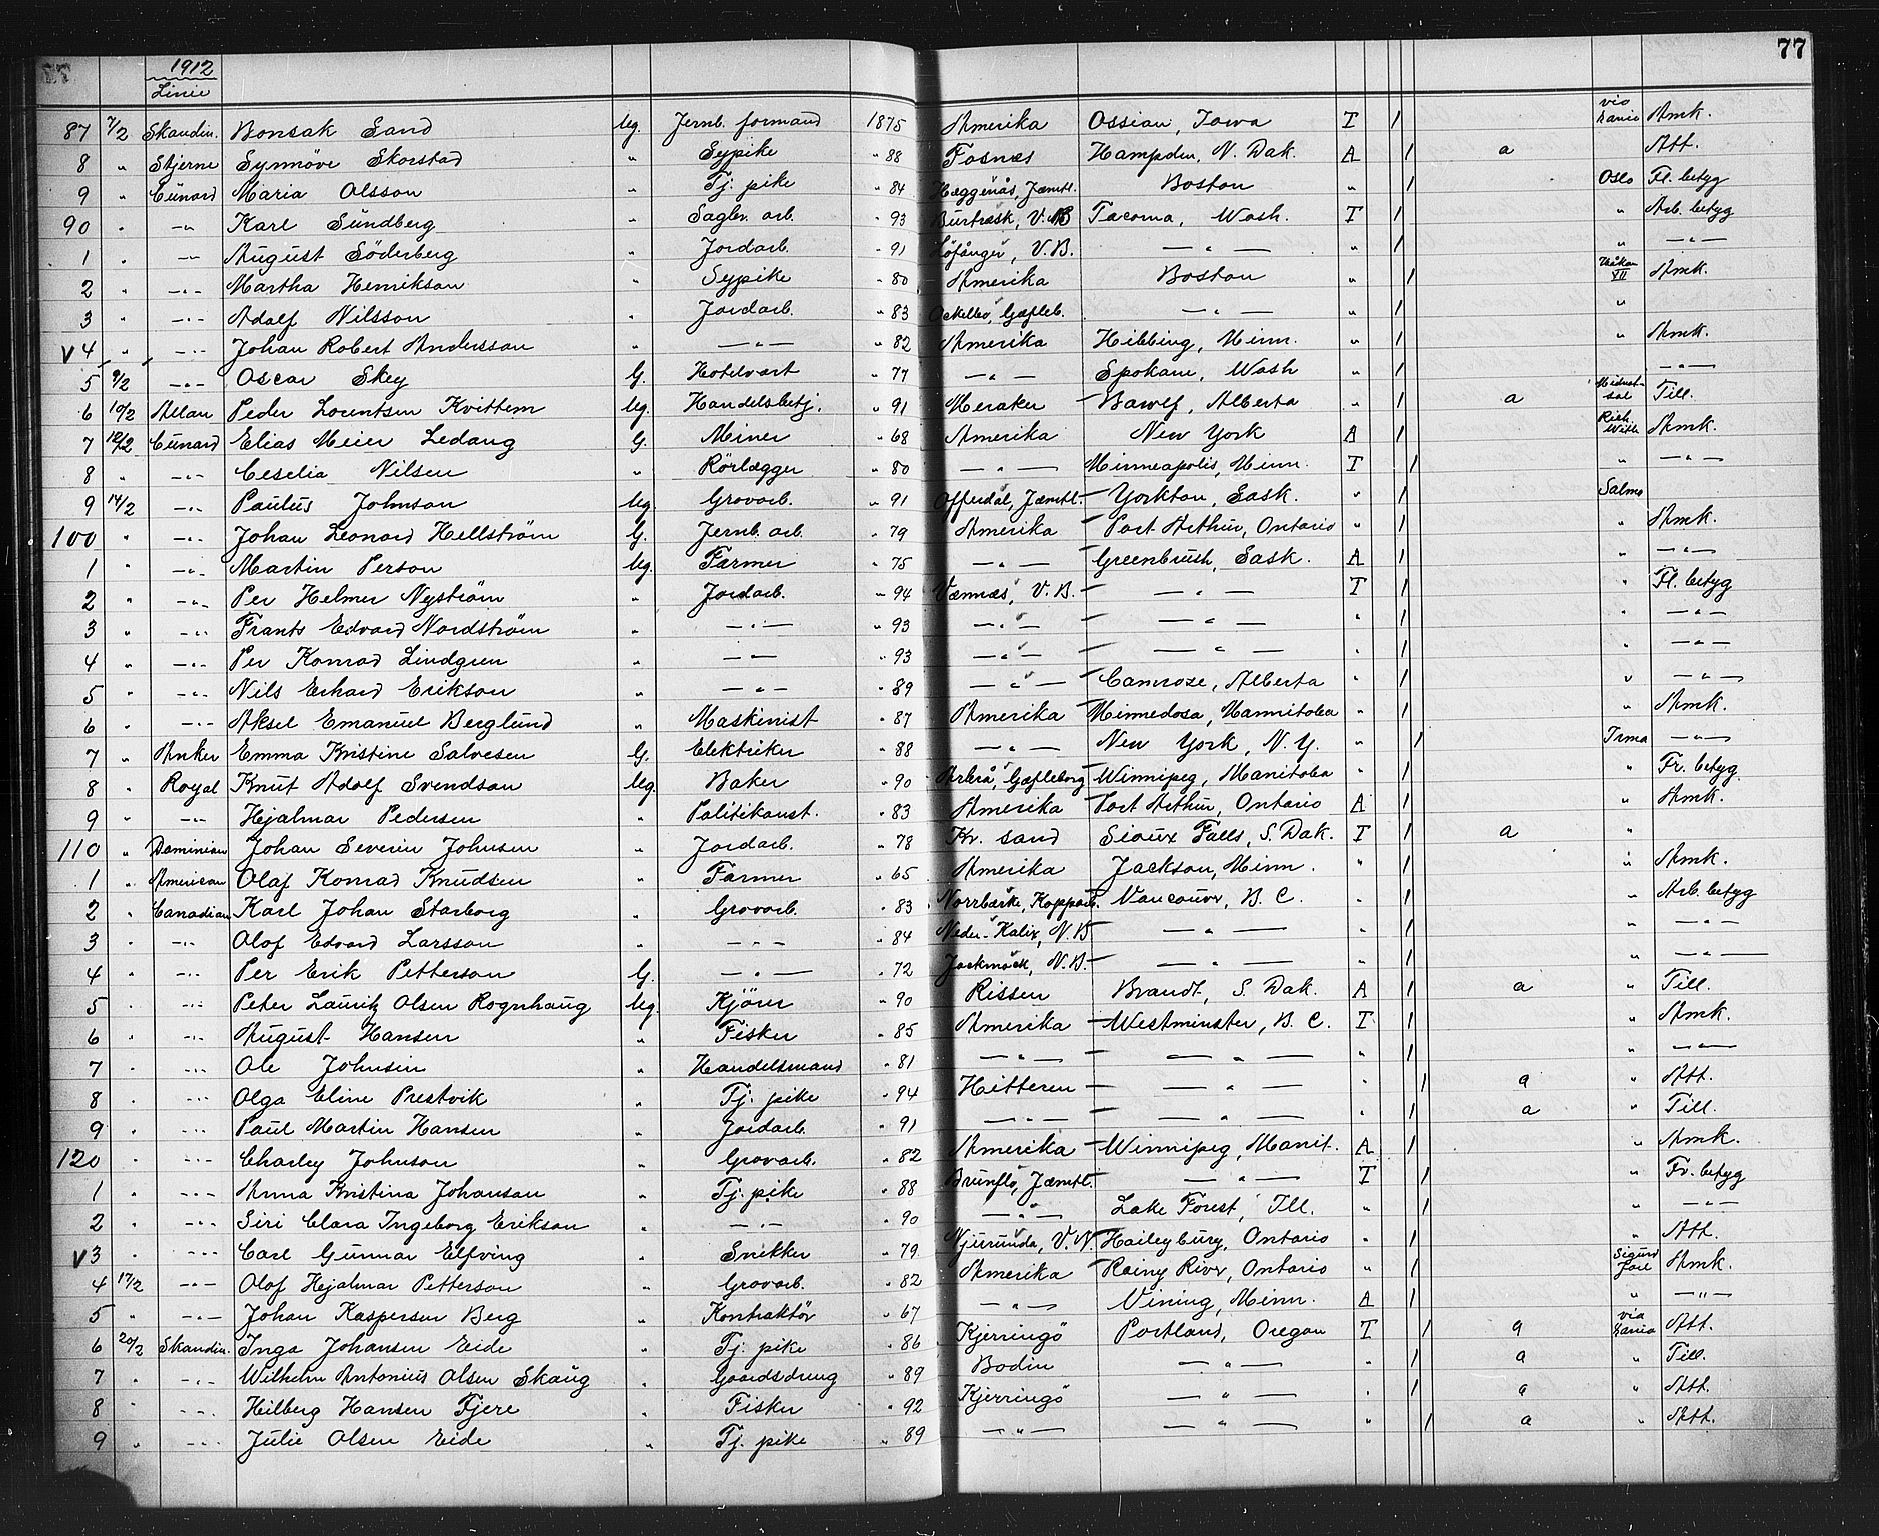 77
1912
Linie
87 7/2 Skandin. Bonsak Sand Ug. Jernb. formand 1875 Amerika Ossian, Iowa T 1 via Dania Amk.
8 " Stjerne Synnöve Skorstad " Sypike " 88 Fosnes Hampden, N. Dak. A 1 a Att.
9 " Cunard Maria Olsson " Tj. pike " 84 Häggenås, Jæmtl. Boston " 1 Oslo Fl. betyg
90 " -"- Karl Sundberg " Sagbr. arb. " 93 Burtræsk, V. B Tacoma, Wash. T 1 " Arb. betyg
1 " -"- August Söderberg " Jordarb. " 91 Löfånger, V.B. -"- " 1 " -"-
2 " -"- Martha Henrikson " Sypike " 80 Amerika Boston " 1 Håkon VII Amk.
3 " -"- Adolf Nilsson " Jordarb. " 83 Ockelbo, Gæfleb. -"- " 1 "
V4 " -"- Johan Robert Andersson " -"- " 82 Amerika Hibbing, Minn. " 1 " Amk.
5 9/2 -"- Oscar Skey G. Hotelvært " 77 -"- Spokane, Wash " 1 -"-
6 10/2 Allan Peder Lorentsen Kvittem Ug. Handelsbetj. " 91 Meraker Bawlf, Alberta " 1 a Midnatsol Till.
7 12/2 Cunard Elias Meier Ledang G. Miner " 68 Amerika New York A 1 Rich. With Amk.
8 " -"- Ceselia Nilsen " Rörlægger " 80 -"- Minneapolis, Minn. T 1 " -"-
9 14/2 -"- Paulus Johnson Ug. Grovarb. " 91 Offerdal, Jæmtl. Yorkton, Sask. " 1 Salmo
100 " -"- Johan Leonard Hellström G. Jernb. arb. " 79 Amerika Port Arthur, Ontario " 1 " Amk.
1 " -"- Martin Person Ug. Farmer " 75 -"- Greenbrush, Sask. A 1 " -"-
2 " -"- Per Helmer Nyström " Jordarb. " 94 Vænnæs, V. B. -"- T 1 " Fl. betyg
3 " -"- Frants Edvard Nordström " -"- " 93 -"- -"- " 1 " -"-
4 " -"- Per Konrad Lindgren " -"- " 93 -"- -"- " 1 " -"-
5 " -"- Nils Erhard Erikson " -"- " 89 -"- Camrose, Alberta " 1 " -"-
6 " -"- Aksel Emanuel Berglund " Maskinist " 87 Amerika Minnedosa, Mannitoba " 1 " Amk.
7 " Anker Emma Kristine Salvesen G. Elektriker " 88 -"- New York, N.Y. " 1 Irma -"-
8 " Royal Knut Adolf Svendsen Ug. Baker " 90 Arbrå, Gæfleborg Winnipeg, Manitoba " 1 " Fr. betyg
9 " -"- Hjalmar Pedersen " Politikonst. " 83 Amerika Port Arthur, Ontario A 1 " Amk.
110 " Dominian Johan Severin Johnsen " Jordarb. " 78 Kr. sand Sioux Falls, S. Dak. T 1 a "
1 " American Olaf Konrad Knudsen " Farmer " 65 Amerika Jackson, Minn. " 1 " Amk.
2 " Canadian Karl Johan Starborg " Grovarb. " 83 Norrbärke, Kopparb. Vancouver, B. C. " 1 " Arb. betyg
3 " -"- Olof Edvard Larsson " -"- " 84 Neder-Kalix, N.B -"- " 1 " -"-
4 " -"- Per Erik Petterson G. -"- " 72 Jockmock, N.B. -"- " 1 " -"-
5 " -"- Peter Lauritz Olsen Rognhaug Ug. Kjörer " 90 Rissen Brandt, S. Dak. A 1 a " Till.
6 " -"- August Hansen " Fisker " 85 Amerika Westminster, B. C. T 1 " Amk.
7 " -"- Ole Johnsen " Handelsmand " 81 -"- -"- " 1 " -"-
8 " -"- Olga Eline Prestvik " Tj. pike " 94 Hitteren -"- " 1 a " Att.
9 " -"- Paul Martin Hansen " Jordarb. " 91 -"- -"- " 1 a " Till.
120 " -"- Charley Johnson " Grovarb. " 82 Amerika Winnipeg, Manit. A 1 " Amk.
1 " -"- Anna Kristina Johanson " Tj. pike " 88 Brunflo, Jæmtl. -"- T 1 " Fr. betyg
2 " -"- Siri Clara Ingeborg Erikson " -"- " 90 -"- Lake Forest, Ill. " 1 " -"-
V3 " -"- Carl Gunnar Elfving " Snekker " 79 Njurunda, V.N. Haileybury, Ontario " 1 " Att.
4 17/2 -"- Olof Hjalmar Petterson " Grovarb. " 82 Amerika Rainy River, Ontario " 1 Sigurd Jarl Amk.
5 " -"- Johan Kaspersen Berg " Kontraktör " 67 -"- Vining, Minn. A 1 " -"-
6 20/2 Skandin. Inga Johansen Eide " Tj. pike " 86 Kjerringö Portland, Oregon T 1 a via Dania Att.
7 " -"- Wilhelm Antonius Olsen Skaug " Gaardsdreng " 89 Bodin -"- " 1 a " Till.
8 " -"- Hilberg Hansen Fjere " Fisker " 92 Kjerringö -"- " 1 a " Att.
9 " -"- Julie Olsen Eide " Tj. pike " 89 -"- -"- " 1 a " Att.